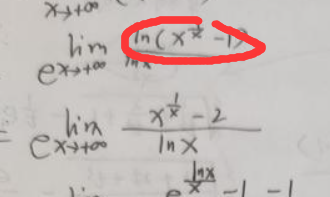 x→+∞
e^{lim_{x→+∞} ln(x^{1/x} -1)/lnx}
= e^{lim_{x→+∞} (x^{1/x} - 2)/lnx}
lim e^{lnx/x} -1 -1